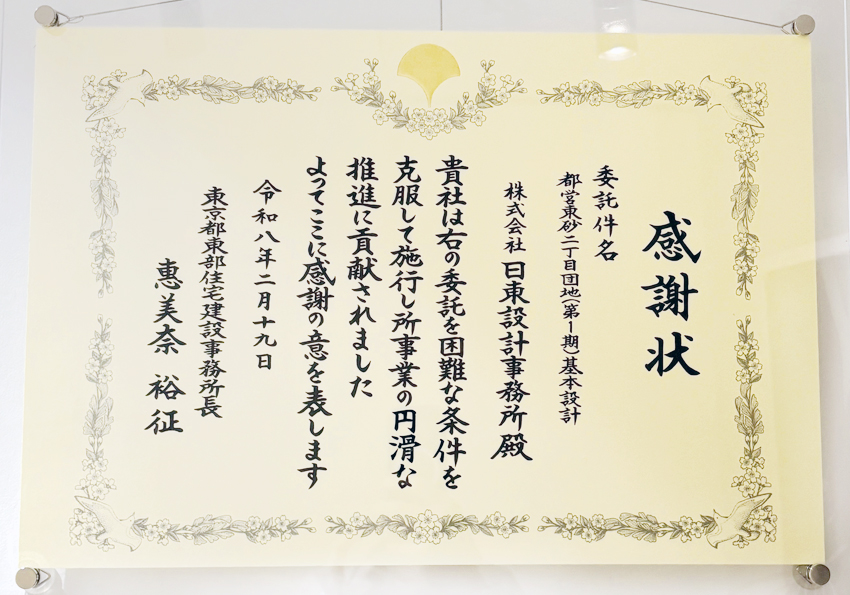 感謝状
委託件名
都営東砂二丁目団地(第1期)基本設計
株式会社 日東設計事務所殿
貴社は右の委託を困難な条件を
克服して施行し所事業の円滑な
推進に貢献されました
よってここに感謝の意を表します
令和八年二月十九日
東京都東部住宅建設事務所長
惠美奈 裕征